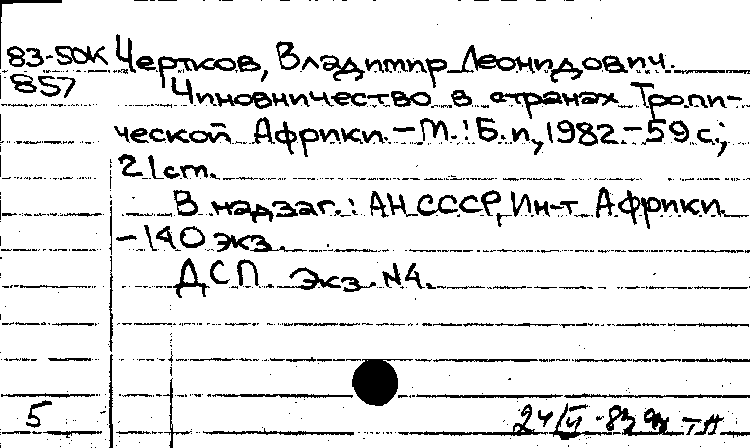 83-50К Чертков, Владимир Леонидович.
857 Чиновничество в странах Тропи-
ческой Африки. – М.: Б.и, 1982 – 59 с.;
21 cm.
В надзаг.: АН СССР, Ин-т Африки.
– 140 экз.
ДСП. Экз. N4.
5